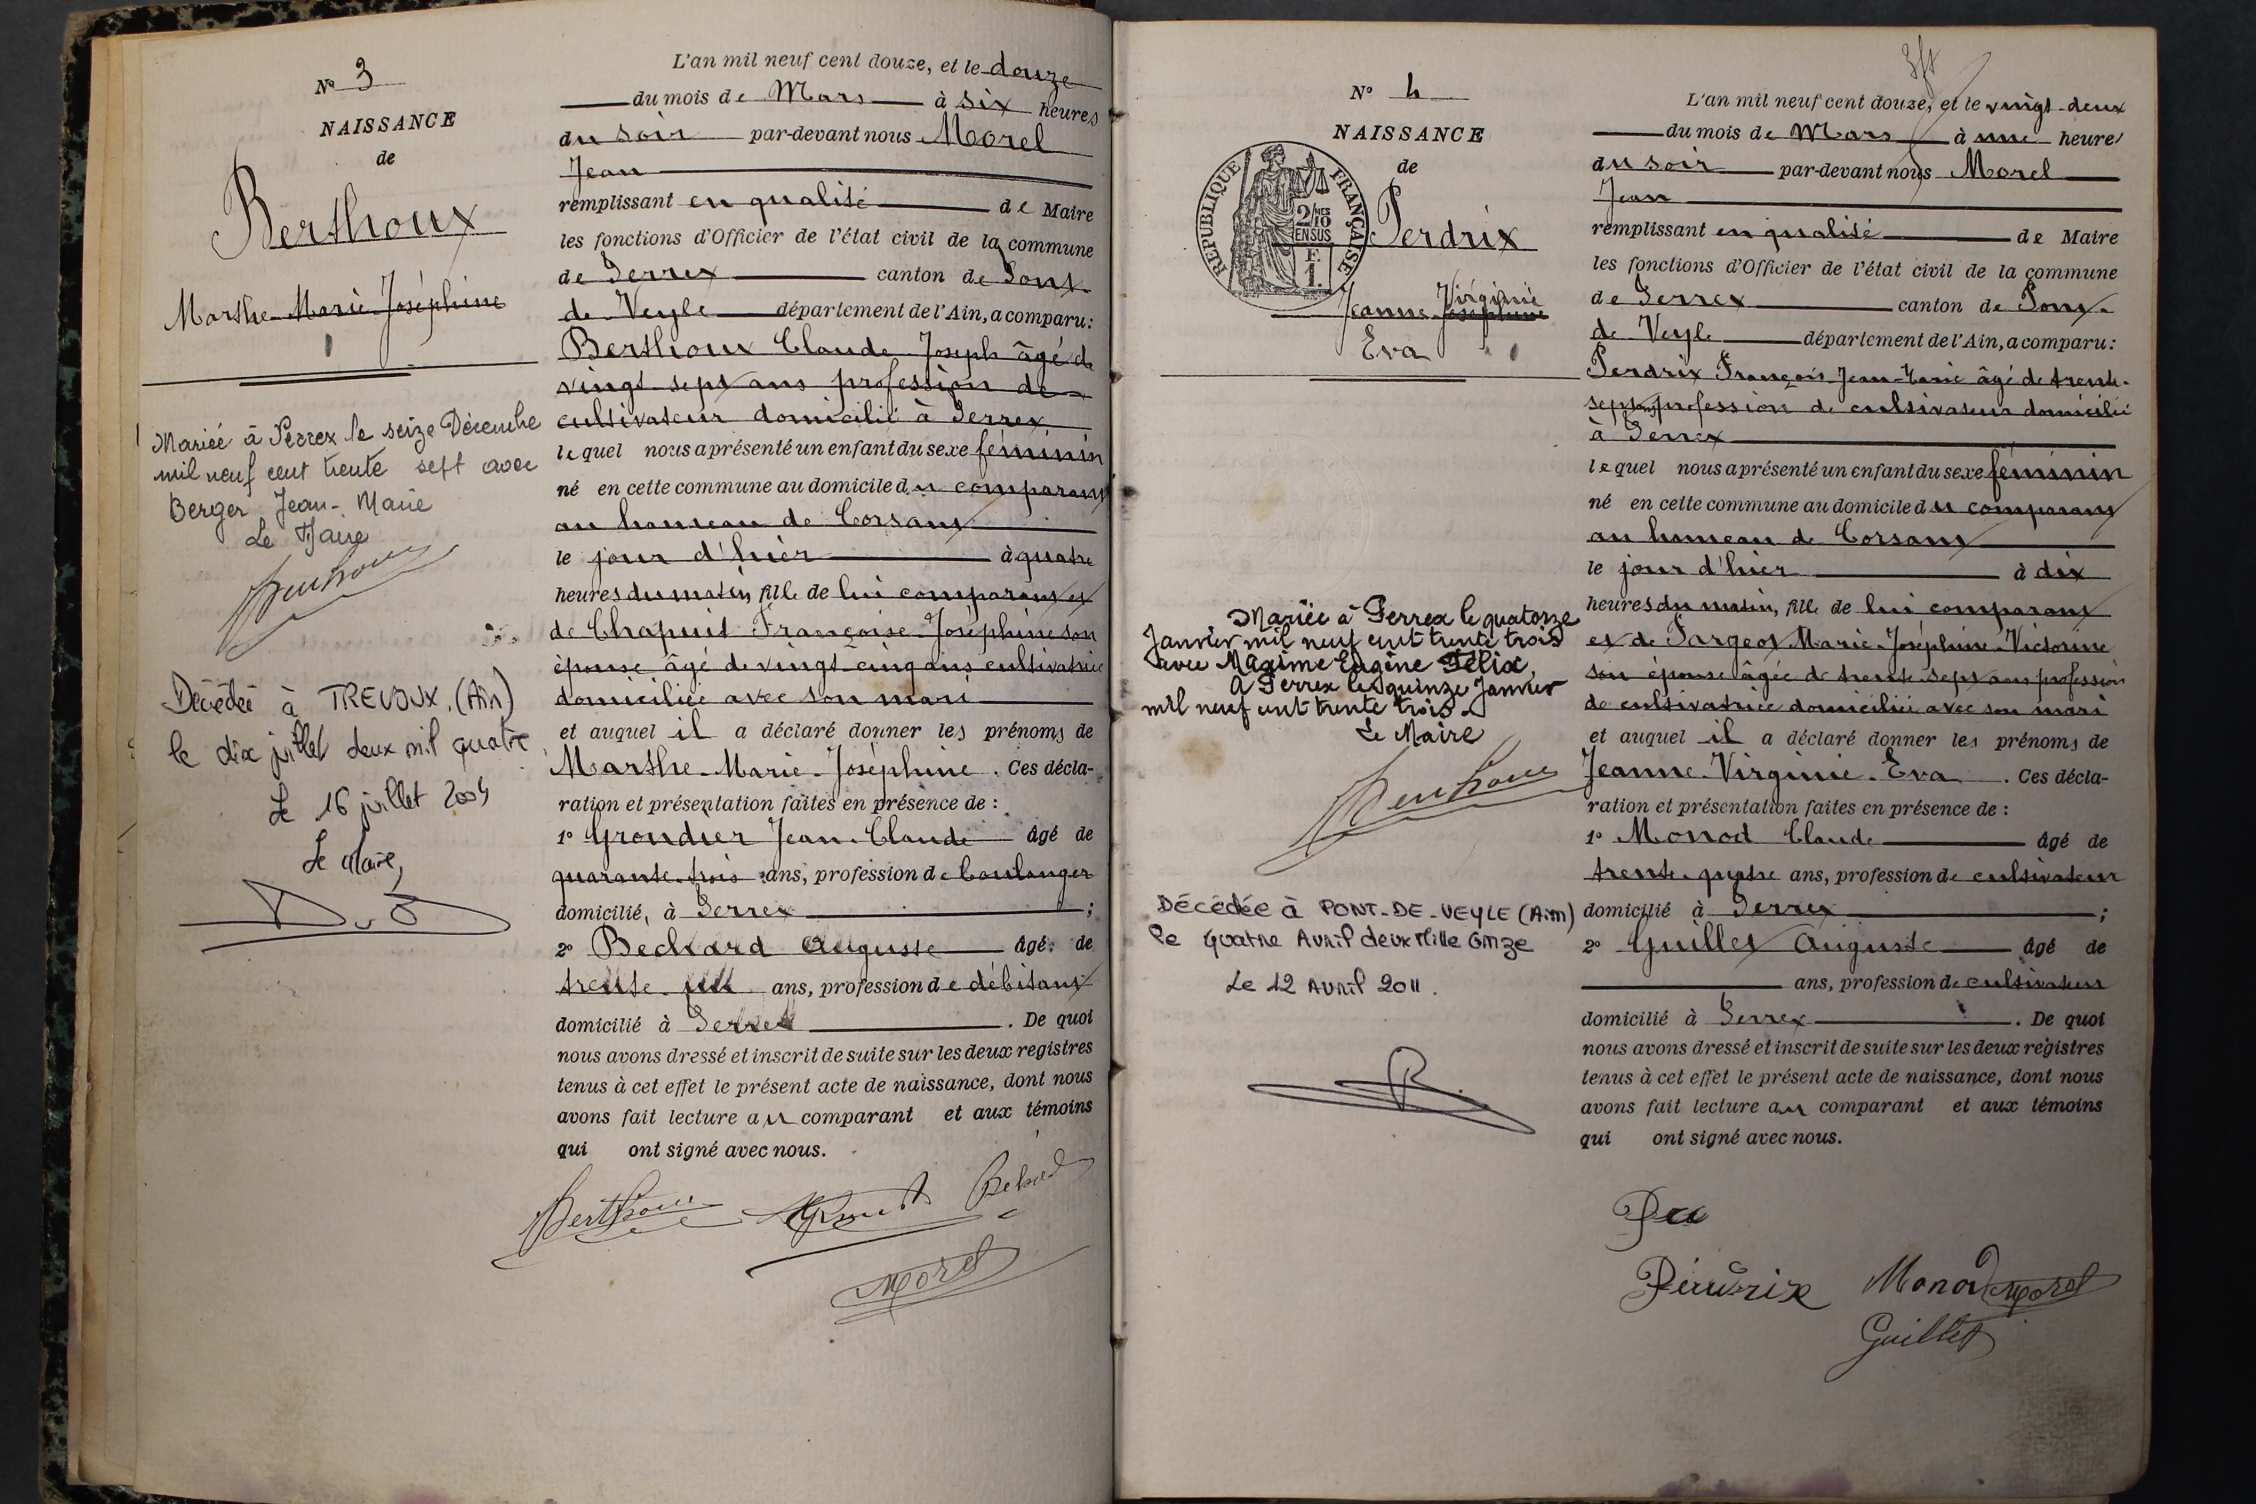 N° 3
NAISSANCE
de
Berthoux
Marthe Marie Joséphine
Mariée à Perrex le seize Décembre
mil neuf cent trente sept avec
Berger Jean-Marie
Le Maire
Décédée à TREVOUX (Ain)
le dix juillet deux mil quatre
Le 16 juillet 2004
Le Maire,
L'an mil neuf cent douze, et le douze
du mois de Mars à six heures
du soir par-devant nous Morel
Jean
remplissant en qualité de Maire
les fonctions d'Officier de l'état civil de la commune
de Perrex canton de Pont
de Veyle département de l'Ain, a comparu:
Berthoux Claude Joseph âgé de
vingt sept ans profession de
cultivateur domicilié à Perrex
lequel nous a présenté un enfant du sexe féminin
né en cette commune au domicile du comparant
au hameau de Corsant
le jour d'hier à quatre
heures du matin, fille de lui comparant et
de Chapuit Françoise Joséphine son
épouse âgé de vingt-cinq ans cultivatrice
domiciliée avec son mari
et auquel il a déclaré donner les prénoms de
Marthe-Marie-Joséphine. Ces décla-
ration et présentation faites en présence de :
1° Grondier Jean-Claude âgé de
quarante-trois ans, profession de boulanger
domicilié, à Perrex ;
2° Béchard Auguste âgé de
trente ans, profession de débitant
domicilié à Perrex. De quoi
nous avons dressé et inscrit de suite sur les deux registres
tenus à cet effet le présent acte de naissance, dont nous
avons fait lecture au comparant et aux témoins
qui ont signé avec nous.
Berthoux
Morel
N° 4
NAISSANCE
de
RÉPUBLIQUE FRANÇAISE
2/10 MES
EN SUS
1 F.
Perdrix
Virginie
Jeanne Joséphine
Eva
Mariée à Perrex le quatorze
Janvier mil neuf cent trente trois
avec Maxime Eugène Félix
A Perrex le quinze Janvier
mil neuf cent trente trois.
Le Maire
Décédée à PONT-DE-VEYLE (Ain)
le quatre Avril deux Mille Onze
Le 12 Avril 2011.
L'an mil neuf cent douze, et le vingt-deux
du mois de Mars à une heure
du soir par-devant nous Morel
Jean
remplissant en qualité de Maire
les fonctions d'Officier de l'état civil de la commune
de Perrex canton de Pont
de Veyle département de l'Ain, a comparu:
Perdrix François Jean-Marie âgé de trente-
sept ans profession de cultivateur domicilié
à Perrex
lequel nous a présenté un enfant du sexe féminin
né en cette commune au domicile du comparant
au hameau de Corsant
le jour d'hier à dix
heures du matin, fille de lui comparant
et de Pargeot Marie-Joséphine-Victorine
son épouse âgée de trente-sept ans profession
de cultivatrice domiciliée avec son mari
et auquel il a déclaré donner les prénoms de
Jeanne-Virginie-Eva. Ces décla-
ration et présentation faites en présence de :
1° Monod Claude âgé de
trente-quatre ans, profession de cultivateur
domicilié à Perrex ;
2° Guillet Auguste âgé de
ans, profession de cultivateur
domicilié à Perrex. De quoi
nous avons dressé et inscrit de suite sur les deux registres
tenus à cet effet le présent acte de naissance, dont nous
avons fait lecture au comparant et aux témoins
qui ont signé avec nous.
Monod Morel
Guillet